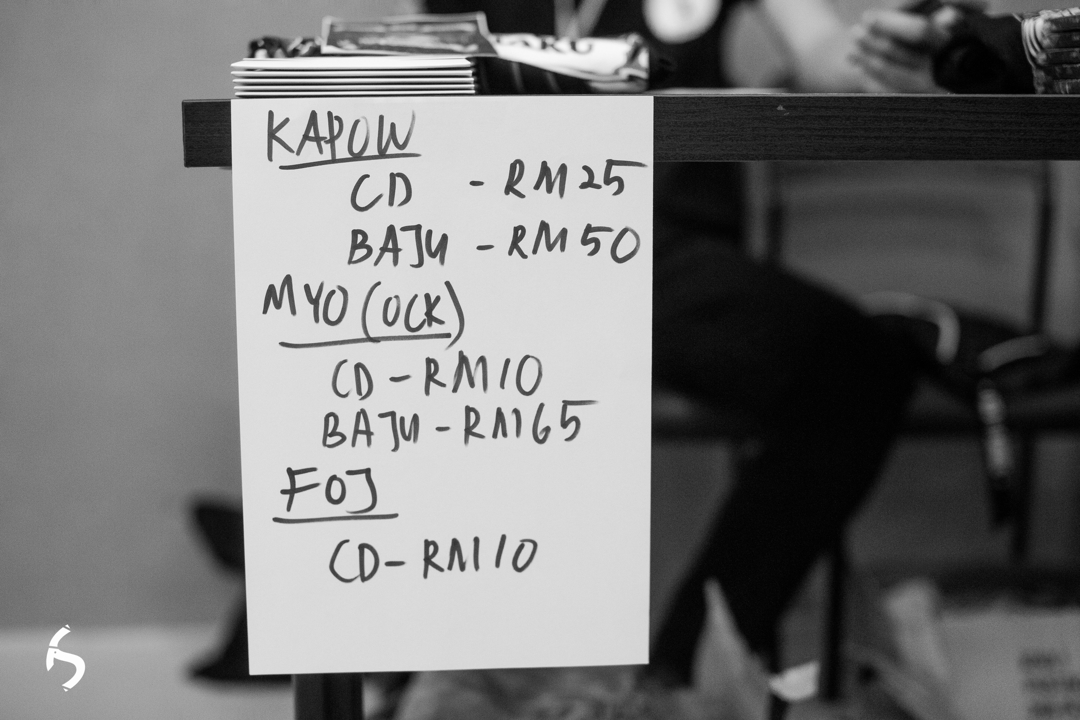 KAPOW
CD - RM25
BAJU - RM50
MYO (OCK)
CD - RM10
BAJU - RM65
FOJ
CD - RM10